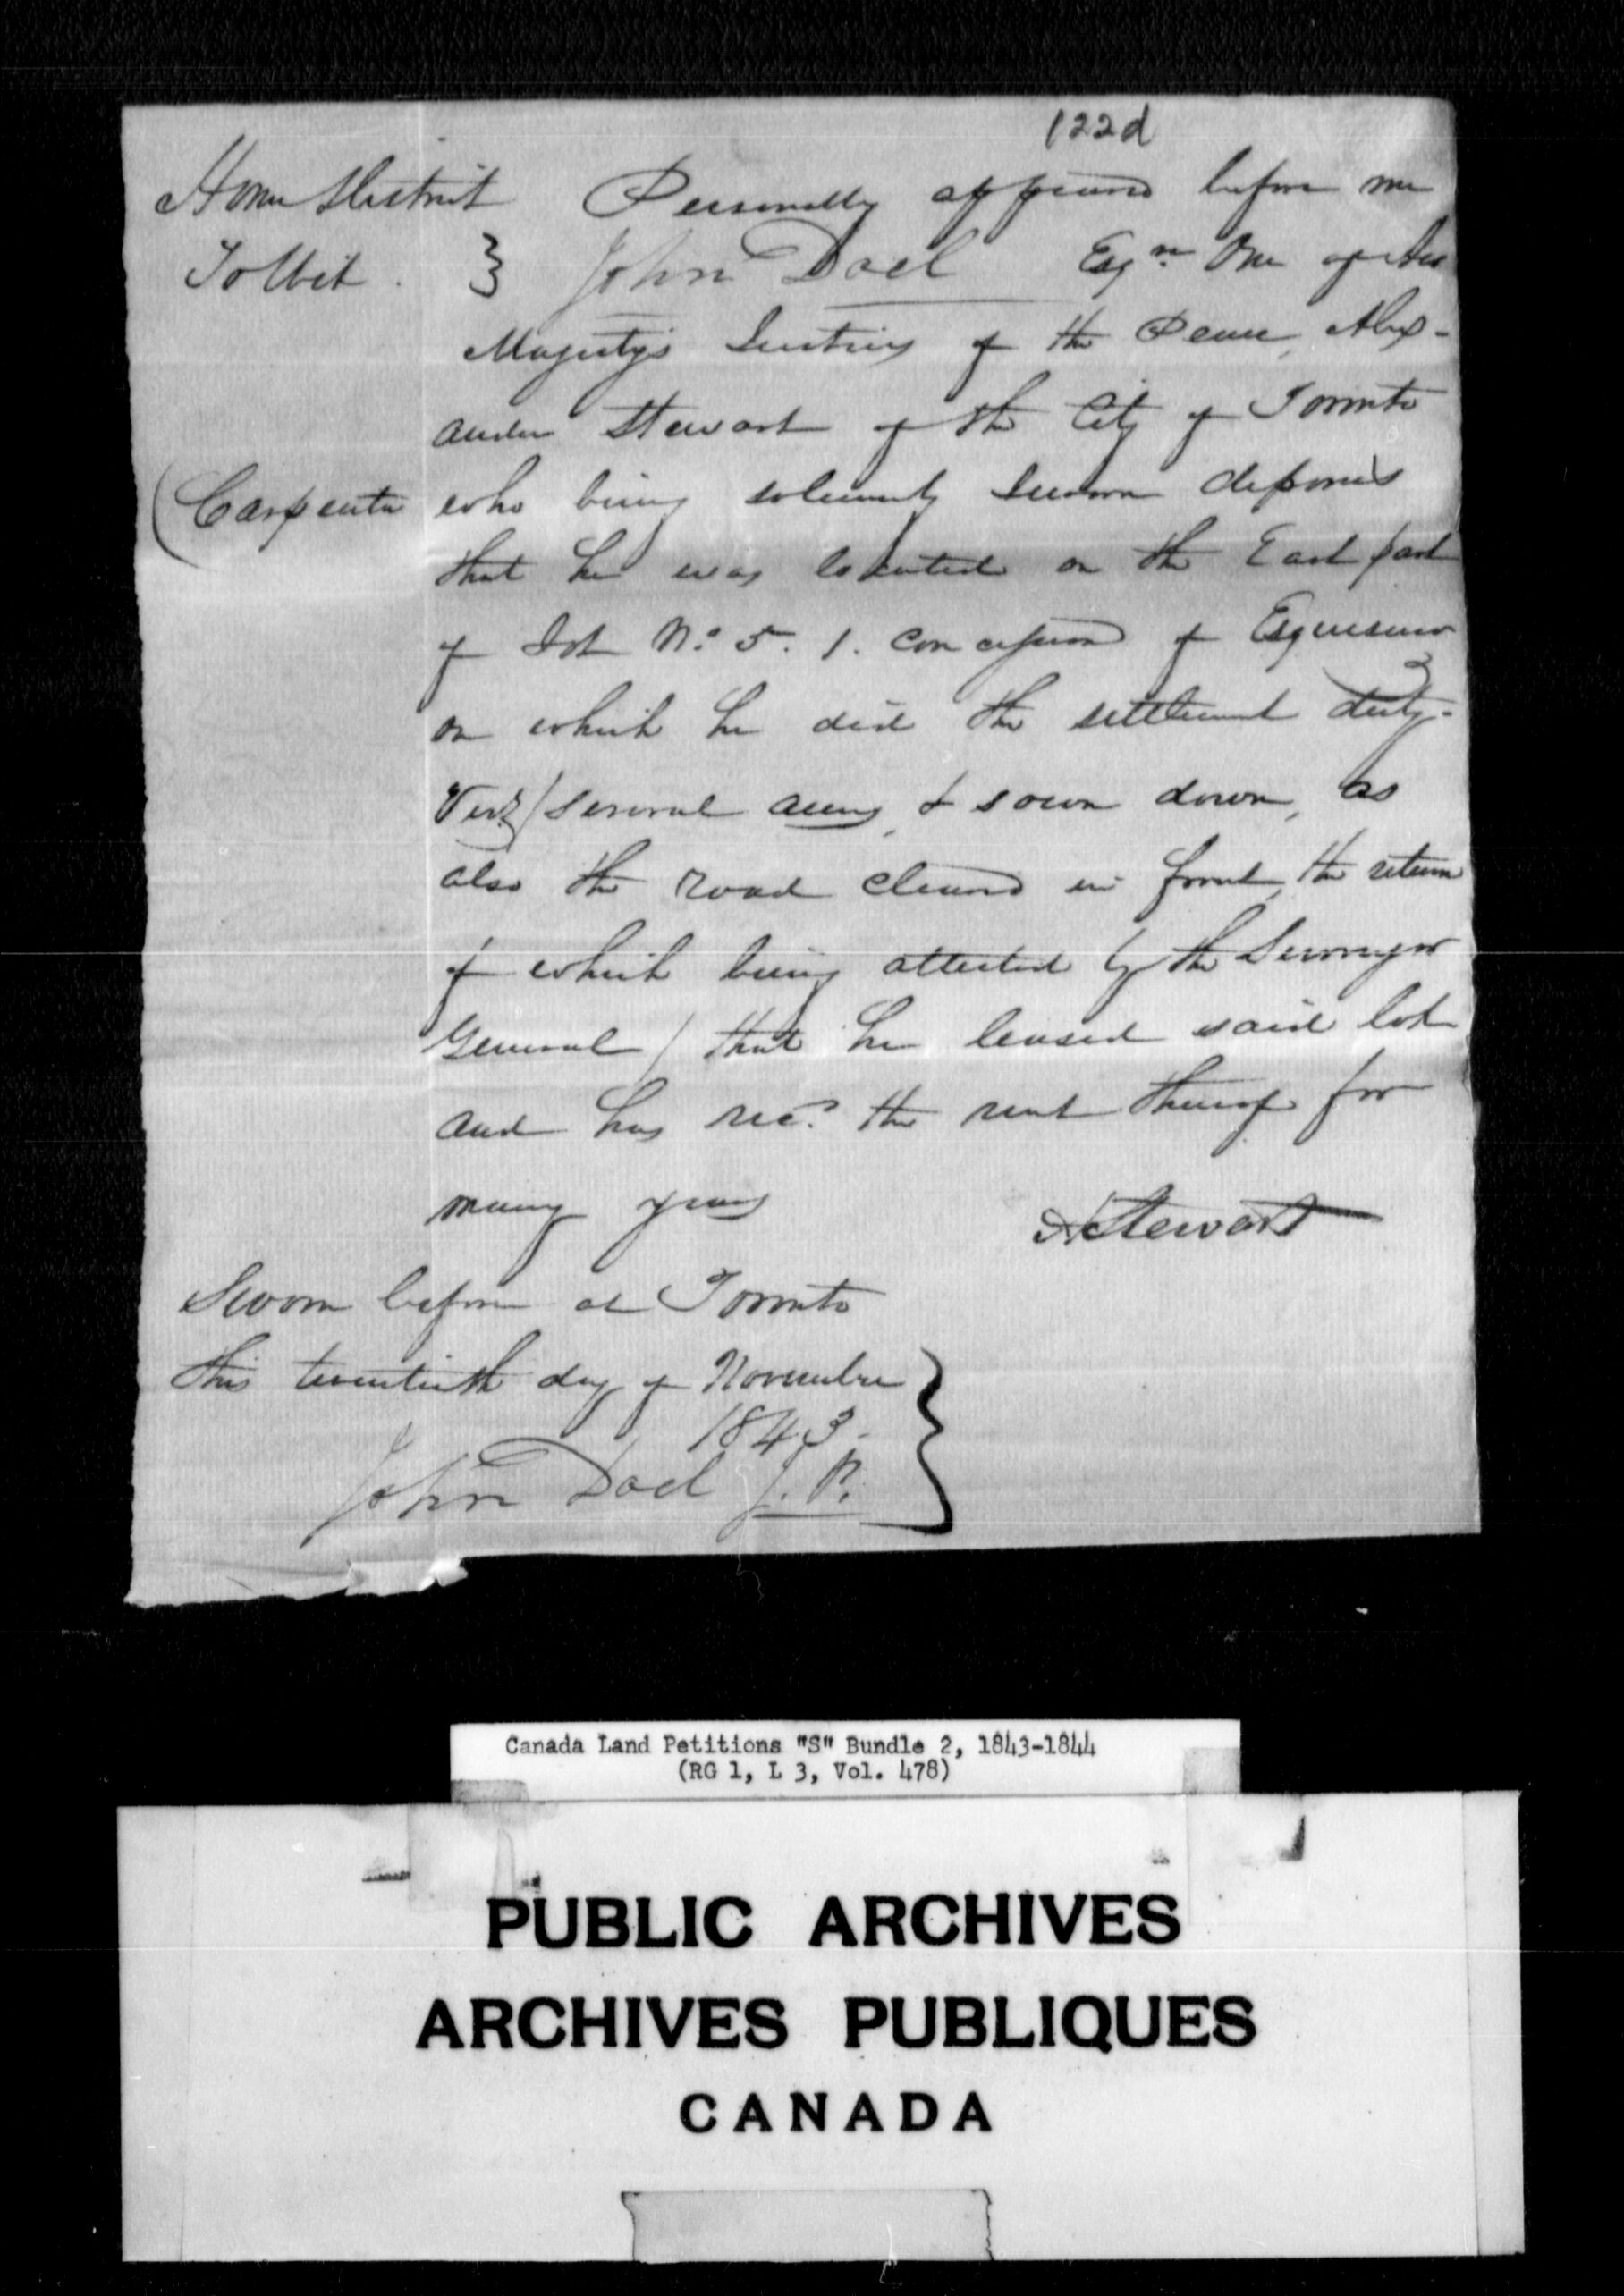 122d
Home District Personally appeared before me
To Wit. } John Doel Esqre One of Her
Majesty's Justices of the Peace, Alex-
ander Stewart of the City of Toronto
(Carpenter who being solemnly sworn deposes
that he was located on the East part
of Lot No. 5. 1. Concession of Esquesing
on which he did the settlement duty-
Vizt / several acres & sown down, as
also the road cleared in front, the return
of which being attested by the Surveyor
General / that he leased said lot
and has recd. the rent thereof for
many years AStewart
Sworn before at Toronto
this twentieth day of November
1843.
John Doel J. P.
Canada Land Petitions "S" Bundle 2, 1843-1844
(RG 1, L 3, Vol. 478)
PUBLIC ARCHIVES
ARCHIVES PUBLIQUES
CANADA